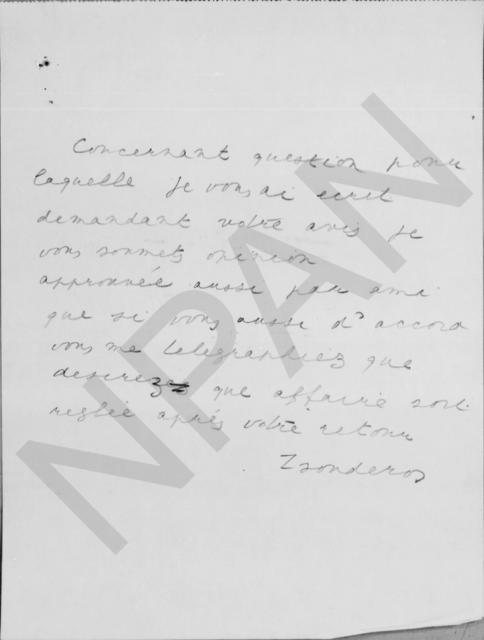 Concernant question pour
laquelle je vous ai ecrit
demandant votre avis je
vous soumets opinion
approuvée aussi par ami
que si vous aussi d'accord
vous me telegraphiez que
desirez que affaire soit
reglée après votre retour
Tsouderos
NPAN